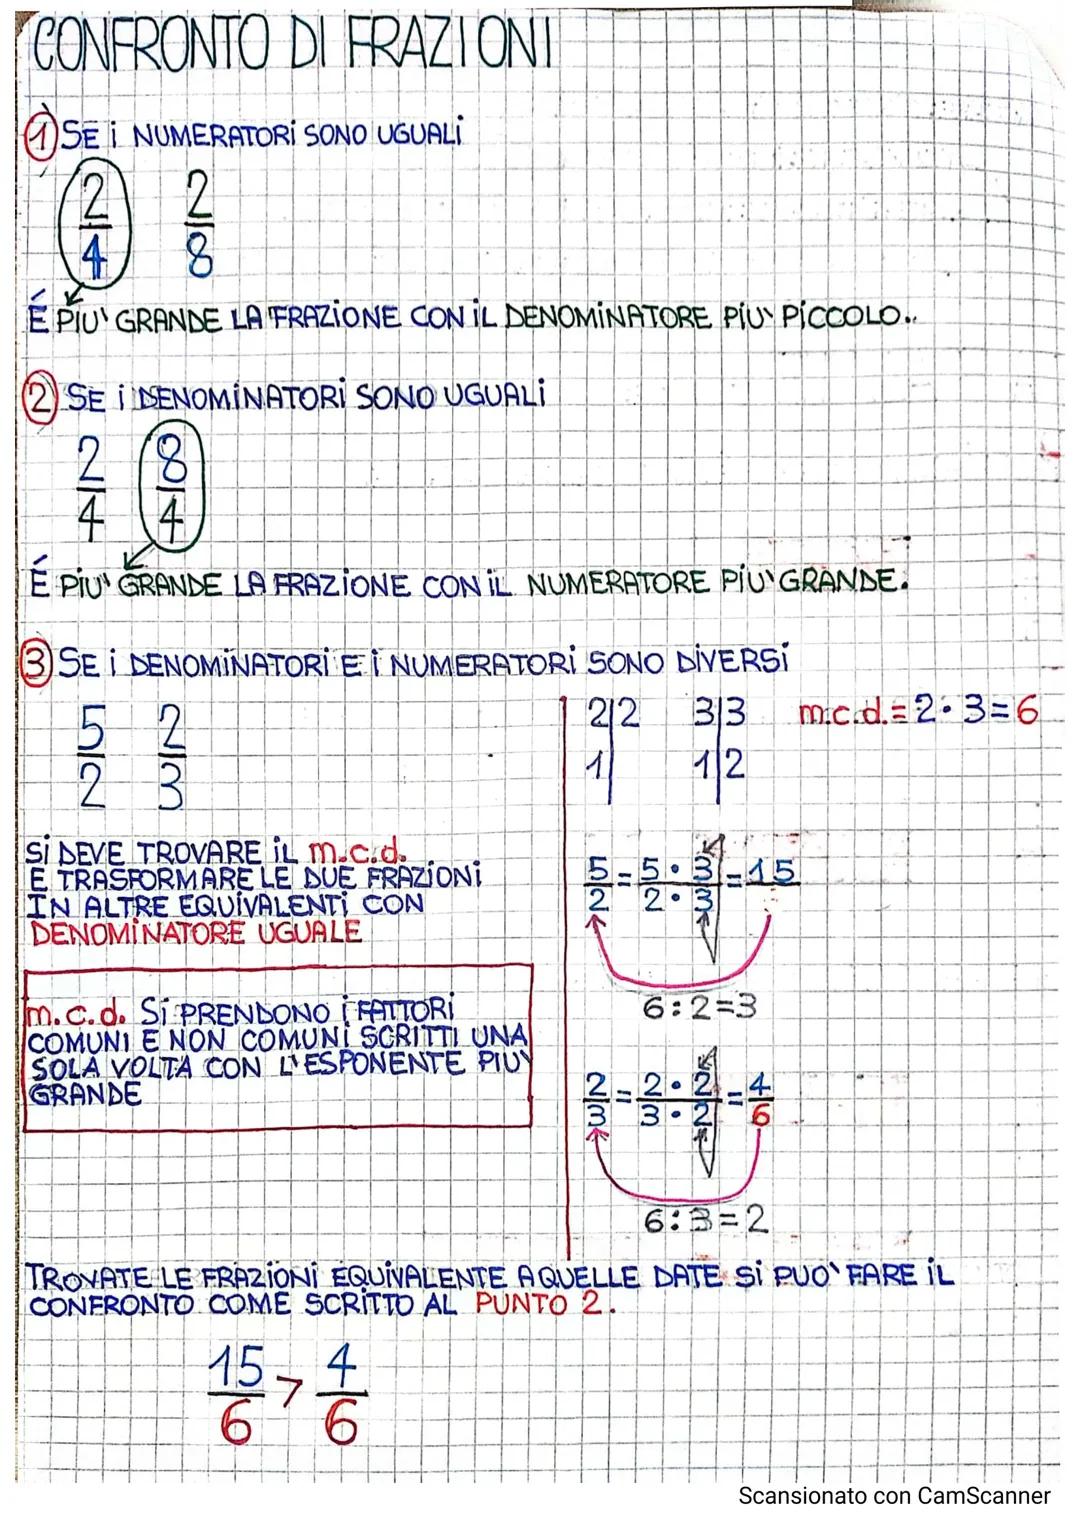 CONFRONTO DI FRAZIONI
1 SE I NUMERATORI SONO UGUALI
2/4 2/8
É PIU' GRANDE LA FRAZIONE CON IL DENOMINATORE PIU' PICCOLO.
2 SE I DENOMINATORI SONO UGUALI
2/4 8/4
É PIU' GRANDE LA FRAZIONE CON IL NUMERATORE PIU' GRANDE.
3 SE I DENOMINATORI E I NUMERATORI SONO DIVERSI
5/2 2/3
SI DEVE TROVARE IL m.c.d.
E TRASFORMARE LE DUE FRAZIONI
IN ALTRE EQUIVALENTI CON
DENOMINATORE UGUALE
m.c.d. SI PRENDONO I FATTORI
COMUNI E NON COMUNI SCRITTI UNA
SOLA VOLTA CON L'ESPONENTE PIU'
GRANDE
2|2 3|3 m.c.d.=2·3=6
1| 1|2
5/2 = 5·3/2·3 = 15
6:2=3
2/3 = 2·2/3·2 = 4/6
6:3=2
TROVATE LE FRAZIONI EQUIVALENTE A QUELLE DATE SI PUO' FARE IL
CONFRONTO COME SCRITTO AL PUNTO 2.
15/6 > 4/6
Scansionato con CamScanner